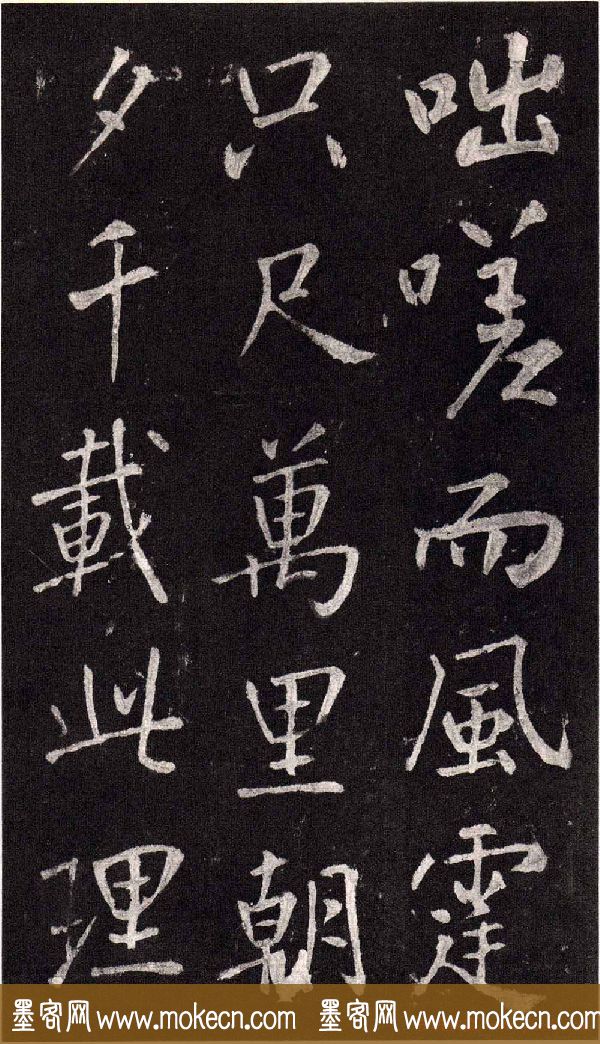 咄嗟而風霆
只尺萬里朝
夕千載此理
墨客网 www.mokecn.com 墨客网 www.mokecn.com